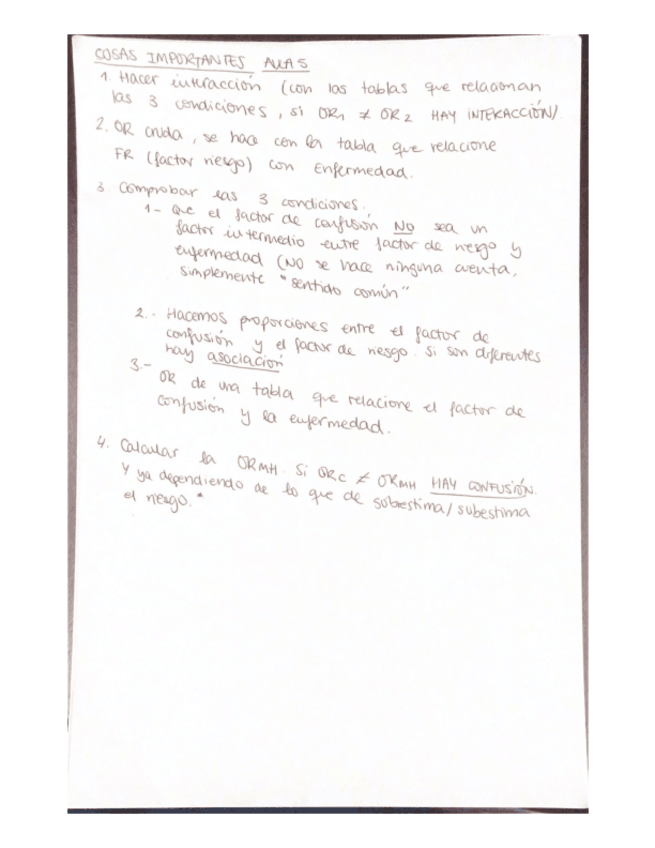 COSAS IMPORTANTES AULA 5
1. Hacer interacción (con las tablas que relacionan
las 3 condiciones, si OR1 ≠ OR2 HAY INTERACCIÓN).
2. OR cruda, se hace con la tabla que relacione
FR (factor riesgo) con enfermedad.
3. Comprobar las 3 condiciones.
1- Que el factor de confusión NO sea un
factor intermedio entre factor de riesgo y
enfermedad (NO se hace ninguna cuenta,
simplemente "sentido común"
2.- Hacemos proporciones entre el factor de
confusión y el factor de riesgo. Si son diferentes
hay asociación
3.- OR de una tabla que relacione el factor de
confusión y la enfermedad.
4. Calcular la ORMH. Si ORC ≠ ORMH HAY CONFUSIÓN.
Y ya dependiendo de lo que de sobrestima/subestima
el riesgo.*